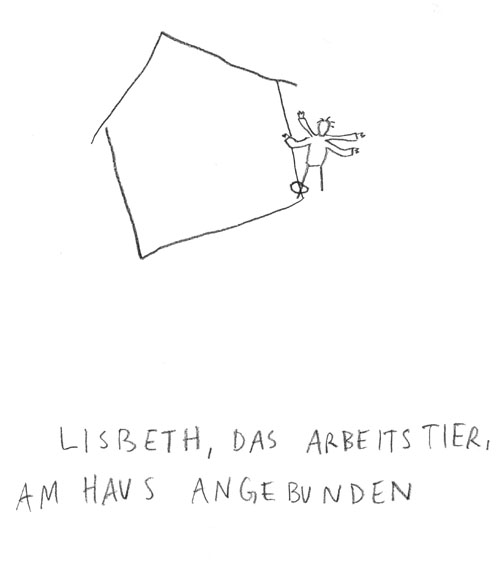 LISBETH, DAS ARBEITSTIER,
AM HAUS ANGEBUNDEN